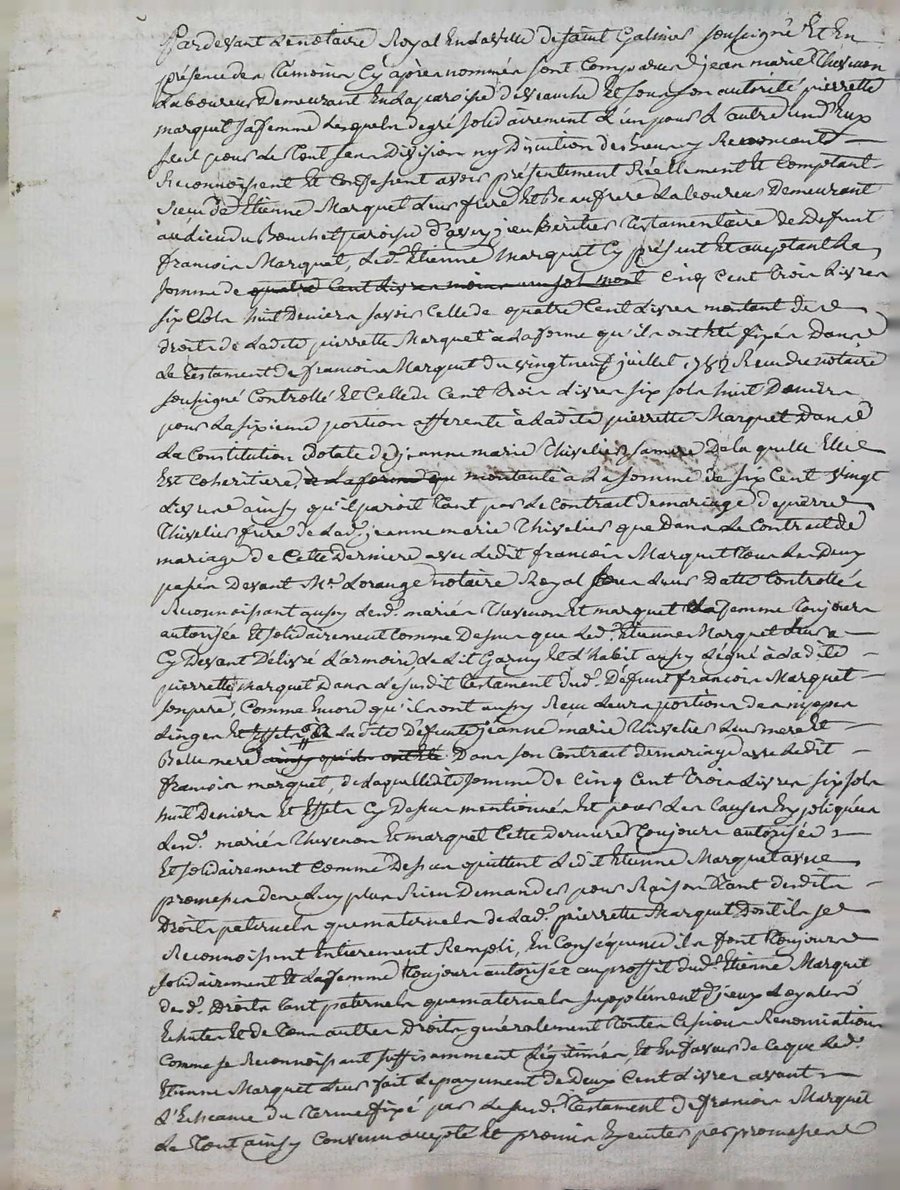 Pardevant le notaire Royal En la ville de saint Galmier soussigné Et En
présence des témoins Cy après nommés sont Comparus jean marie Thevenon
Laboureur Demeurant En la paroisse d'aveauche Et sous son autorité pierrette
marquet sa femme lesquels de gré solidairement l'un pour l'autre un d'Eux
seul pour le Tout sans Division ny Discution de biens y Renoncant
Reconnoissent Et Confessent avoir présentement Réellement Et Comptant
Receu de Etienne Marquet Leur frère Et Beaufrere Laboureur Demeurant
au lieu du Bouchet paroisse d'avezieu héritier Testamentaire de defunt
francois Marquet, led. Etienne marquet Cy présent Et acceptant La
somme de quatre Cent livres moins un sol mont Cinq Cent trois Livres
six sols huit Deniers savoir Celle de quatre Cent Livres montant des
droits de Ladite pierrette Marquet a La forme qu'ils ont Eté fixés Dans
Le Testament de francois Marquet du vingt neuf juillet 1787 Receu de notaire
soussigné Controllé Et Celle de Cent Trois Livres six sols huit Deniers
pour La sixieme portion afferente à Ladite pierrette Marquet Dans
La Constitution dotale de jeanne marie Thivelier sa mere De la quelle Elle
Est Coheritiere, à La forme qu montante à La somme de six Cent vingt
Livres ainsy qu'il paroit Tant par Le Contract de mariage de pierre
Thivelier frere de Lad. jeanne marie Thivelier que Dans Le Contract de
mariage de Cette Derniere avec Ledit francois Marquet Tous Les Deux
passés Devant Me. Lorange notaire Royal sous Leurs Dattes Controllés
Reconnoissant aussy Lesd. mariés Thevenon Et marquet La femme Toujours
autorisée Et solidairement Comme Dessus que Led. Etienne Marquet Leur a
Cy Devant Délivré L'armoire, Le Lit Garny Et L'habit aussy Légué à Ladite
pierrette marquet Dans Le susdit Testament dud. Défunt francois Marquet
son pere, Comme Encore qu'ils ont aussy Receu Leurs portions des nippes
Linges Et Effets de Ladite Défunte jeanne marie Thivelier Leur mere Et
Belle mere ainsy qu'ils ont Eté Dans son Contract de mariage avec Ledit
francois marquet, de Laquelle dte somme de Cinq Cent Trois Livres six sols
huit Deniers Et Effets Cy Dessus mentionnés Et pour Les Causes Expliquées
Lesd. mariés Thevenon Et marquet Cette derniere Toujours autorisée
Et solidairement Comme Dessus quittent Ledit Etienne Marquet avec
promesse de ne Luy plus Rien Demander pour Raison Tant desdits
Droits paternels que maternels de Lad. pierrette Marquet Dont ils se
Reconnoissent Entierement Rempli, En Conséquence ils font Toujours
solidairement Et La femme Toujours autorisée au proffit dud. Etienne Marquet
desd. Droits tant paternels que maternels supplément d'jceux Loyales
Echutes Et de Tous autres Droits généralement Toutes Cessions Renonciations
Comme se Reconnoissant suffisamment Légitimés, Et En faveur de Ceque Led.
Etienne Marquet Leur fait Le payement de Deux Cent Livres avant
L'Echeance du Terme fixé par Le susd. Testament de francois Marquet
Le Tout ainsy Convenu accepté Et promis Executer par promesses